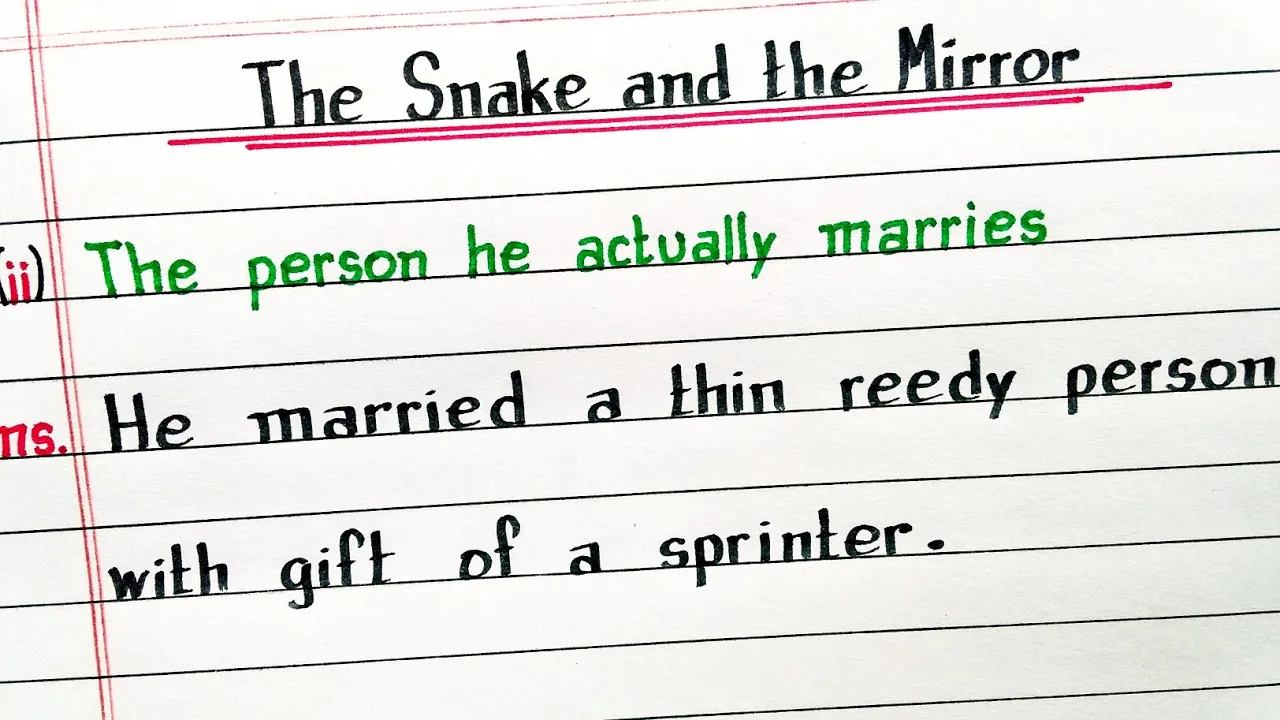 The Snake and the Mirror
(ii) The person he actually marries
ns. He married a thin reedy person
with gift of a sprinter.